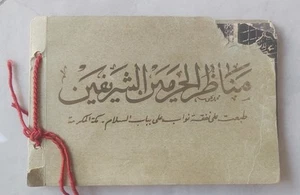 مناظر الحرمين الشريفين
طبعت على نفقة نواب على بباب السلام بمكة المكرمة